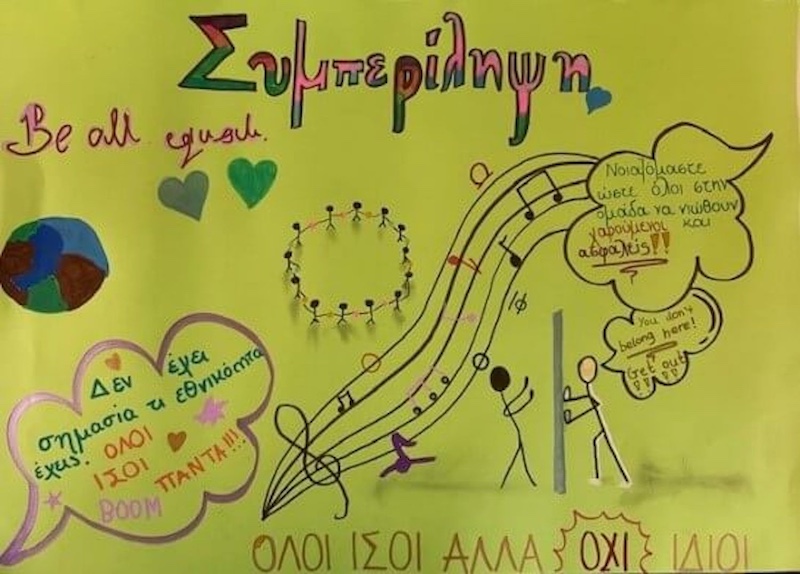 Συμπερίληψη
Be all equals.
Νοιαζόμαστε
ώστε όλοι στην
ομάδα να νιώθουν
χαρούμενοι και
ασφαλείς!!
You don't
belong here!
Get out
!!!!
Δεν έχει
σημασία τι εθνικότητα
έχεις. ΟΛΟΙ
ΙΣΟΙ ΠΑΝΤΑ!!!
BOOM
ΟΛΟΙ ΙΣΟΙ ΑΛΛΑ ΟΧΙ ΙΔΙΟΙ